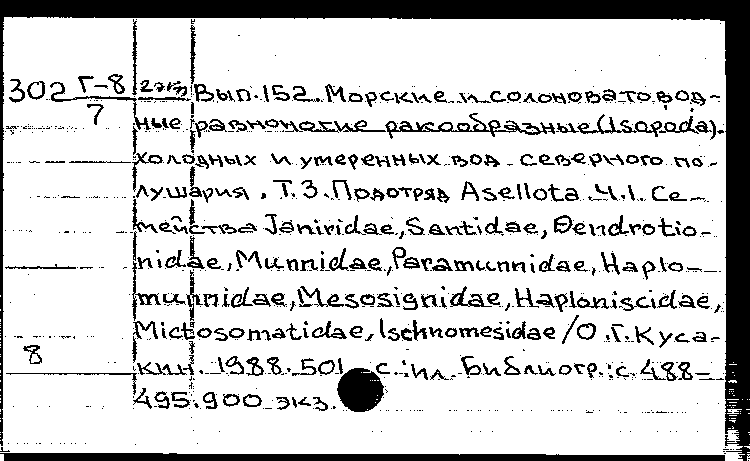 302 Г-8/7 2экз Вып.152. Морские и солоноватовод-
ные равноногие ракообразные (Isopoda).
холодных и умеренных вод северного по-
лушария. Т.3. Подотряд Asellota. Ч.1. Се-
мейства Janiridae, Santidae, Dendrotio-
nidae, Munnidae, Paramunnidae, Haplo-
munnidae, Mesosignidae, Haploniscidae,
Mictosomatidae, Ischnomesidae / О.Г. Куса-
8 кин. 1988. 501 с.: ил. Библиогр.: с. 488-
495. 900 экз.